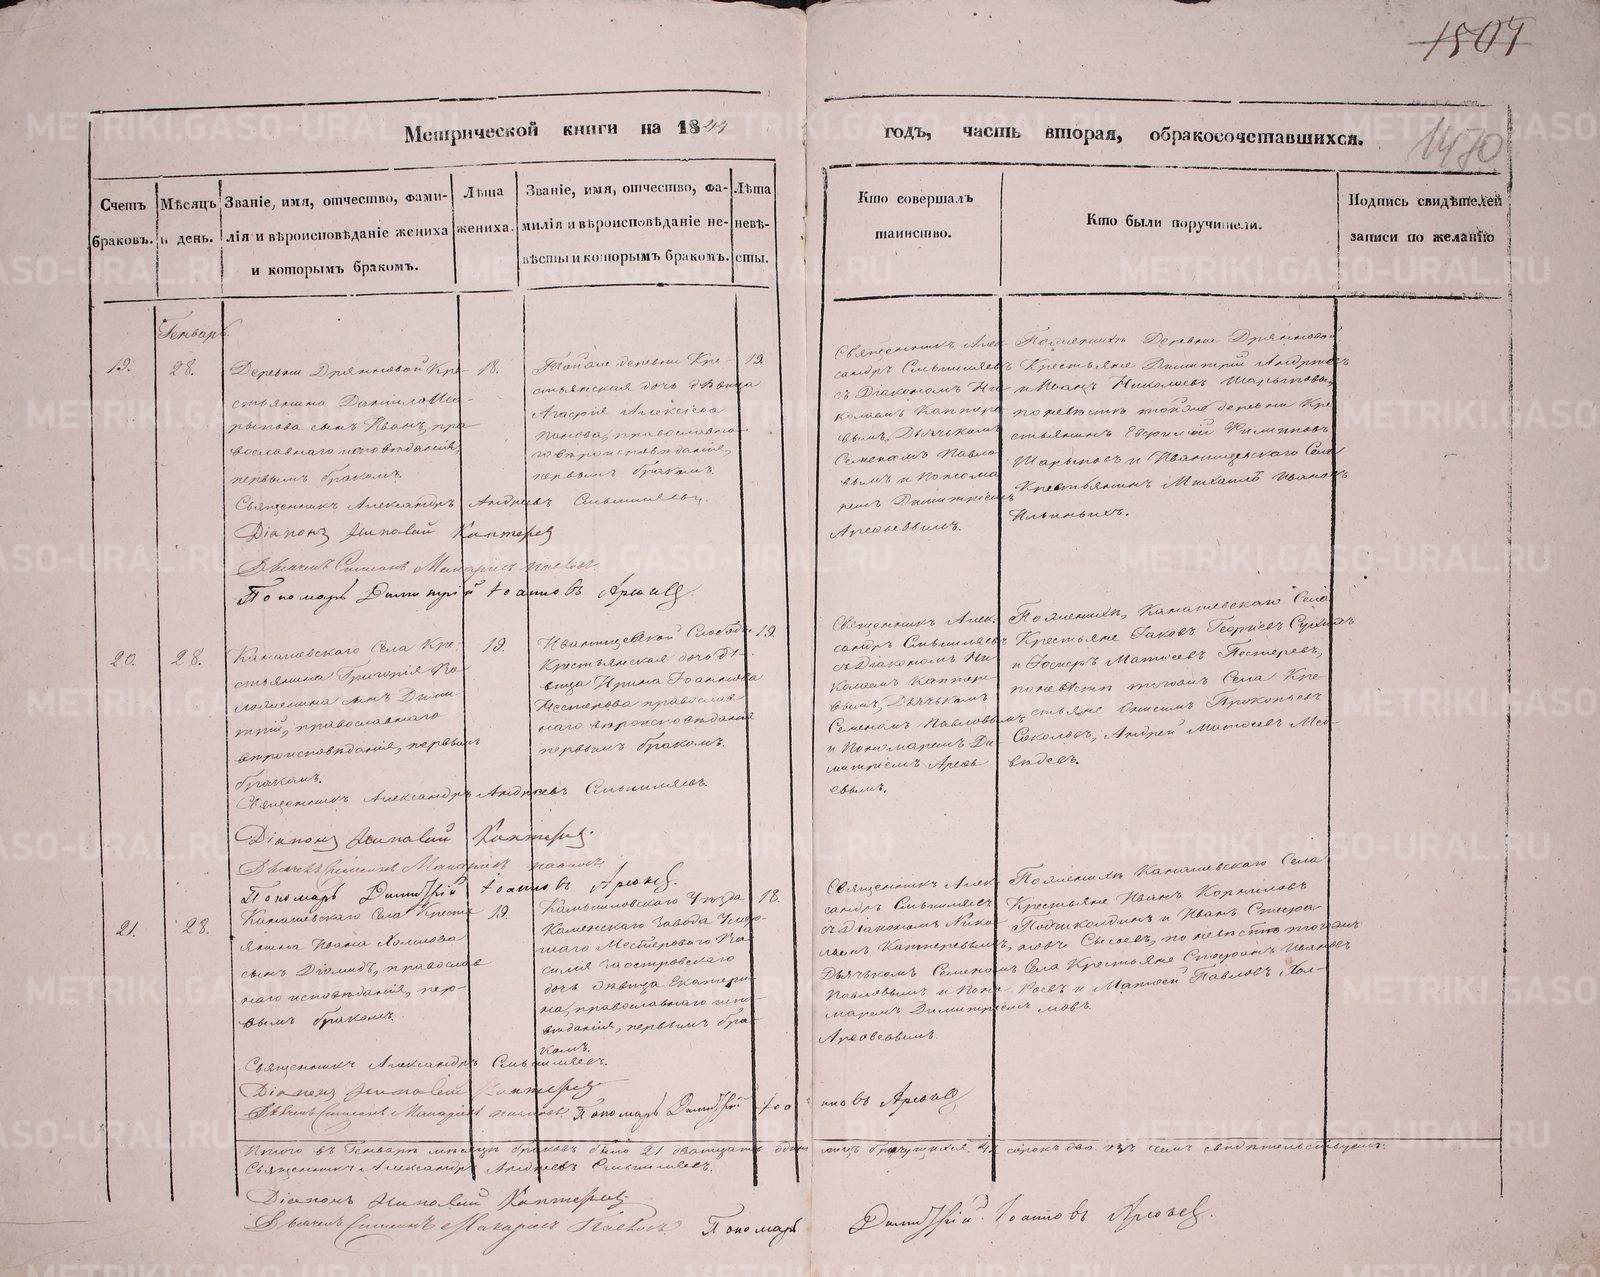 1507
1470
Метрической книги на 1844 годъ, часть вторая, обракосочетавшихся.
Счетъ браковъ.
Мѣсяцъ и день.
Званіе, имя, отчество, фами-
лія и вѣроисповѣданіе жениха
и которымъ бракомъ.
Лѣта
жениха.
Званіе, имя, отчество, фа-
милія и вѣроисповѣданіе не-
вѣсты и которымъ бракомъ.
Лѣта
невѣ-
сты.
Кто совершалъ
таинство.
Кто были поручители.
Подпись свидѣтелей
записи по желанію
Генварь
19.
28.
Деревни Дрянновой Кре-
стьянина Даніила Ша-
рыпова сынъ Иванъ, пра
вославнаго исповѣданія,
первымъ бракомъ.
18.
Той же деревни Кре-
стьянская дочь дѣвица
Агафія Алексіева
Панова, православна-
го вѣроисповѣданія,
первымъ бракомъ.
19.
Священникъ Алек
сандръ Смышляевъ
съ Діакономъ Ни-
колаемъ Каптере
вымъ, Дьячькомъ
Семеномъ Павло
вымъ и Понома
ремъ Димитріемъ
Арефьевымъ.
По женихѣ Деревни Дрянновой
Крестьяне Димитрій Андреевъ
и Иванъ Николаевъ Шарыповы,
по невѣстѣ той же деревни Кре
стьянинъ Евфимій Филипповъ
Шарыповъ и Иванищевскаго Села
Крестьянинъ Михаилъ Ивановъ
Ильиныхъ.
Священникъ Александръ Андреевъ Смышляевъ.
Діаконъ Николай Каптеревъ
Дьячекъ Симеонъ Макаріевъ Павловъ.
Пономарь Димитрій Іоанновъ Арефьевъ
20.
28.
Канашевскаго Села Кре-
стьянина Григорія
сынъ Дими
трій, православнаго
вѣроисповѣданія, первымъ
бракомъ.
19.
Иванищевской Слободы
Крестьянская дочь дѣ-
вица Ирина Іоаннова
Нестерова православ
наго вѣроисповѣданія
первымъ бракомъ.
19.
Священникъ Алек-
сандръ Смышляевъ
съ Діакономъ Ни-
колаемъ Каптере-
вымъ, Дьячькомъ
Семеномъ Павловымъ
и Пономаремъ Ди-
митріемъ Арефь
евымъ.
По женихѣ, Канашевскаго Села
Крестьяне Іаковъ Георгіевъ
и Матѳеевъ
по невѣстѣ тогожъ Села Кре
стьяне Онисимъ Прокопьевъ
Соколовъ, Андрей Матѳеевъ Мед-
вѣдевъ.
Священникъ Александръ Андреевъ Смышляевъ.
Діаконъ Николай Каптеревъ.
Дьячекъ Симеонъ Макаріевъ Павловъ
Пономарь Димитрій Іоанновъ Арефьевъ.
21.
28.
Канашевскаго Села Крестья
янина Ивана Холмова
сынъ Діомидъ, православ
наго исповѣданія, пер-
вымъ бракомъ.
19.
Камышловскаго Уѣзда
Каменскаго Завода Умер-
шаго Мастероваго Ва
силія Заостровскаго
дочь дѣвица Екатери-
на, православнаго испо-
вѣданія, первымъ бра-
комъ.
18.
Священникъ Алек-
сандръ Смышляевъ
съ Діакономъ Нико
лаемъ Каптеревымъ,
Дьячькомъ Семеномъ
Павловымъ и Поно
маремъ Димитріемъ
Арефьевымъ.
По женихѣ Канашевскаго Села
Крестьяне Иванъ Корниловъ
Подшколдинъ и Иванъ Стефа
новъ Сысоевъ, по невѣстѣ тогожъ
Села Крестьяне Стефанъ Ивановъ
и Матѳей Павловъ Хол-
мовъ.
Священникъ Александръ Смышляевъ.
Діаконъ Николай Каптеревъ
Дьячекъ Симеонъ Макаріевъ Павловъ. Пономарь Димитрій Іоанновъ Арефьевъ
Итого въ Генварѣ мѣсяцѣ браковъ было 21 двадцать одинъ лицъ брачущихся 42 сорокъ два въ чемъ свидѣтельствуемъ:
Священникъ Александръ Андреевъ Смышляевъ.
Діаконъ Николай Каптеревъ
Дьячекъ Симеонъ Макаріевъ Павловъ Пономарь Димитрій Іоанновъ Арефьевъ.
METRIKI.GASO-URAL.RU